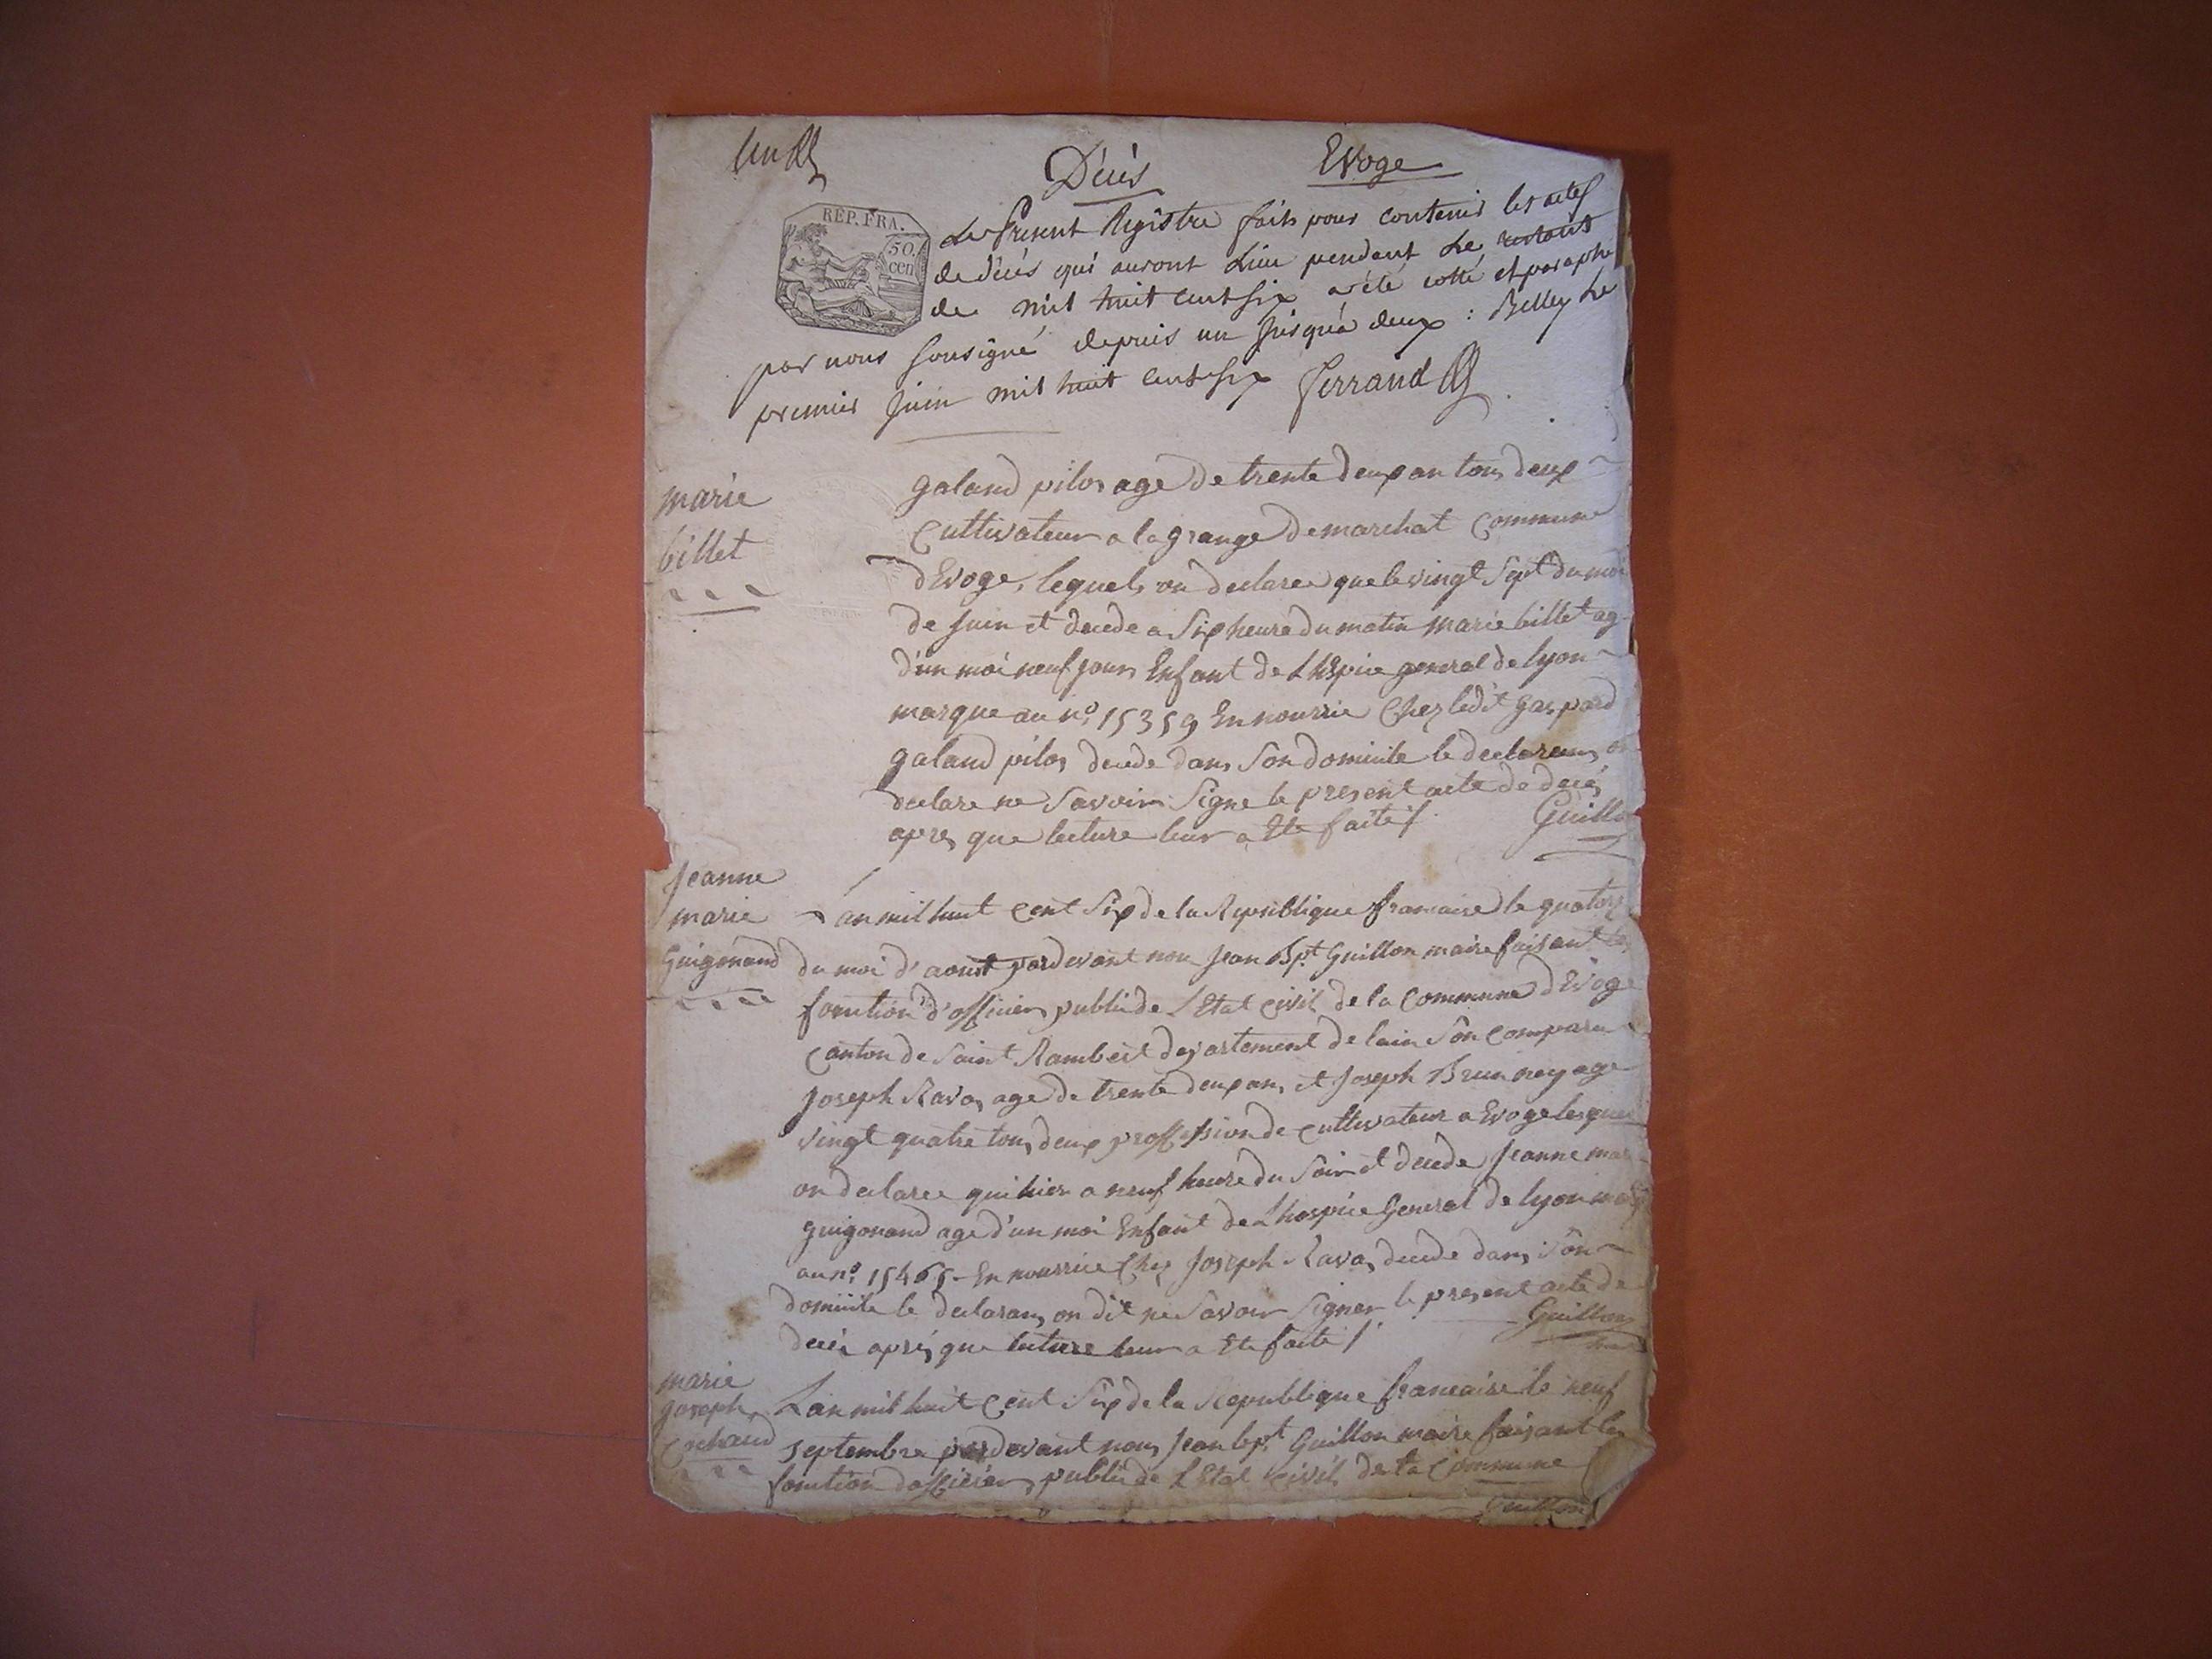 un
Décès
Evoge
REP. FRA.
50.
cen
Le Present Registre fait pour contenir les actes
de décés qui auront Lieu pendant Le restant
de mil huit cent six a été cotté et paraphé
par nous sousigné depuis un jusqu'a deux : Belley Le
premier juin mil huit cent six Ferrand
marie
billet
galand pilos agé de trente deux an tous deux
Cultivateur a la grange de marchat Commune
d'Evoge, lequels on declaree que le vingt Sept du moi
de juin et decede a Six heure du matin marie billet ag
d'un moi neuf jours Enfant de Lhspice general de lyon
marque au no. 15359 En nourrie Chez ledit gaspard
galand pilos decede dans Son domicile le declarans on
declare ne Savoir Signe le present acte de decés
apres que lecture leur a Ete faite /.
Guillo
Jeanne
marie
Guigonand
L'an mil huit Cent Six de la Republique francaise le quatorz
du moi d'aoust pardevant nou Jean Bpt Guillon maire faisant les
fonction d'officier public de L'Etat Civil de la Commune d'Evoge
Canton de Saint Rambert departement de lain Son Comparu
Joseph Ravas age de trente deux ans et Joseph Brunney age
vingt quatre tous deux proffession de Cultivateur a Evoge lesquel
on declaree qui hier a neuf heure du Soir et decede Jeanne mar
guigonand age d'un moi Enfant de Lhospice General de lyon marq
au no. 15465 - En nourrice Chez Joseph Ravas decede dans Son
domicile le declarans on dit ne Savoir Signer le present acte de
decés aprés que lecture leur a Ete faite /
Guillon
marie
joseph
Cochaud
Lan mil huit Cent Six de la Republique francaise le neuf
Septembre pardevant nous Jean bpt Guillon maire faisant les
fonction d'officier public de L'Etat Civil de la Commune
Guillon